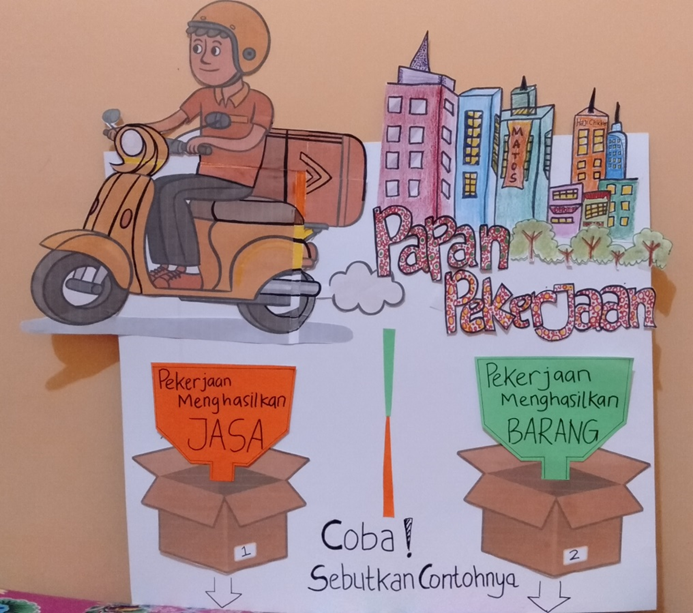 MATOS
Papan
Pekerjaan
Pekerjaan
Menghasilkan
JASA
Pekerjaan
Menghasilkan
BARANG
1
2
Coba!
Sebutkan Contohnya